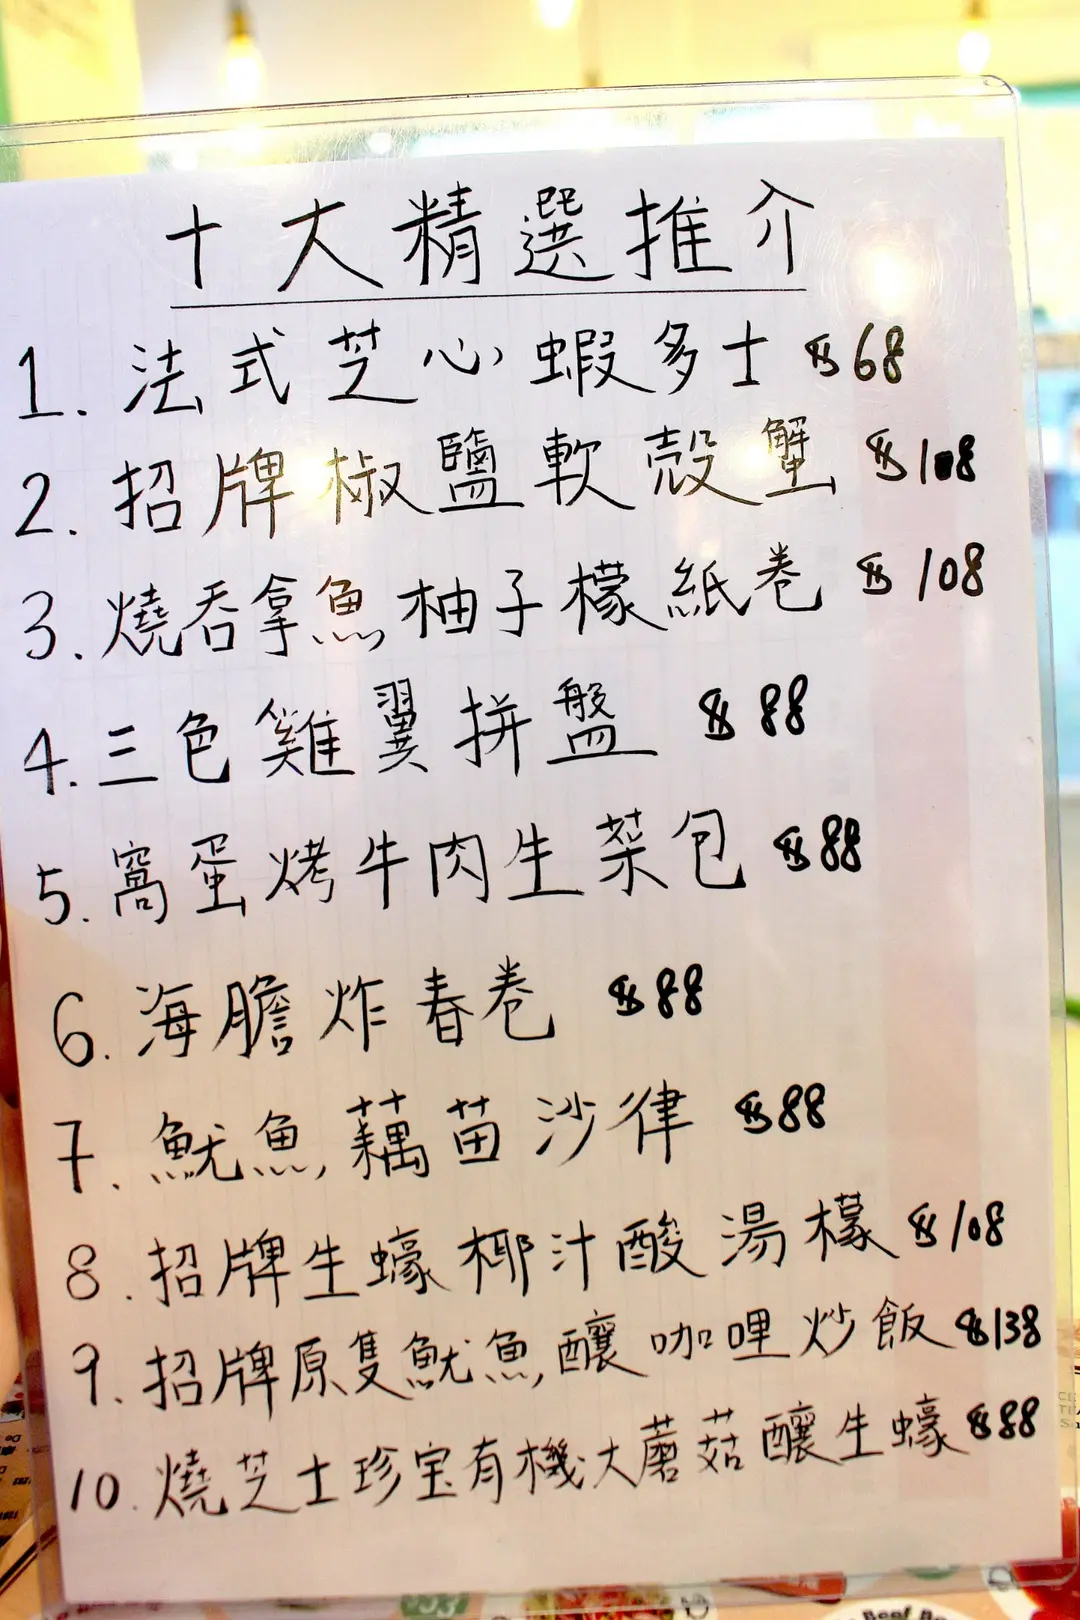 十大精選推介
1. 法式芝心蝦多士 $68
2. 招牌椒鹽軟殼蟹 $108
3. 燒吞拿魚柚子檬紙卷 $108
4. 三色雞翼拼盤 $88
5. 窩蛋烤牛肉生菜包 $88
6. 海膽炸春卷 $88
7. 魷魚藕苗沙律 $88
8. 招牌生蠔椰汁酸湯檬 $108
9. 招牌原隻魷魚釀咖哩炒飯 $138
10. 燒芝士珍宝有機大蘑菇釀生蠔 $88